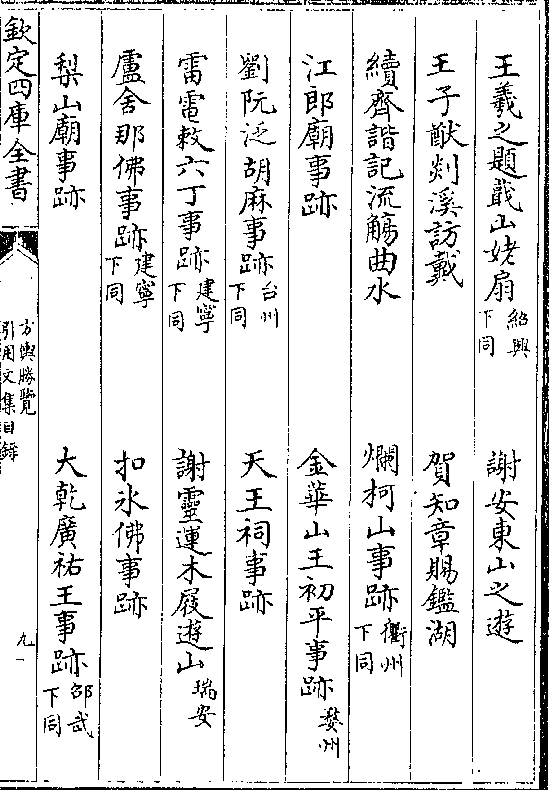 王羲之題蕺山姥扇紹興下同　謝安東山之遊
王子猷剡溪訪戴　賀知章賜鑑湖
續齊諧記流觴曲水　爛柯山事跡衢州下同
江郎廟事跡　金華山王初平事跡婺州
劉阮泛胡麻事跡台州下同　天王祠事跡
雷電敕六丁事跡建寧下同　謝靈運木屐遊山瑞安
盧舍那佛事跡建寧下同　扣氷佛事跡
梨山廟事跡　大乾廣祐王事跡邵武下同
欽定四庫全書
方輿勝覽
引用文集目錄
九